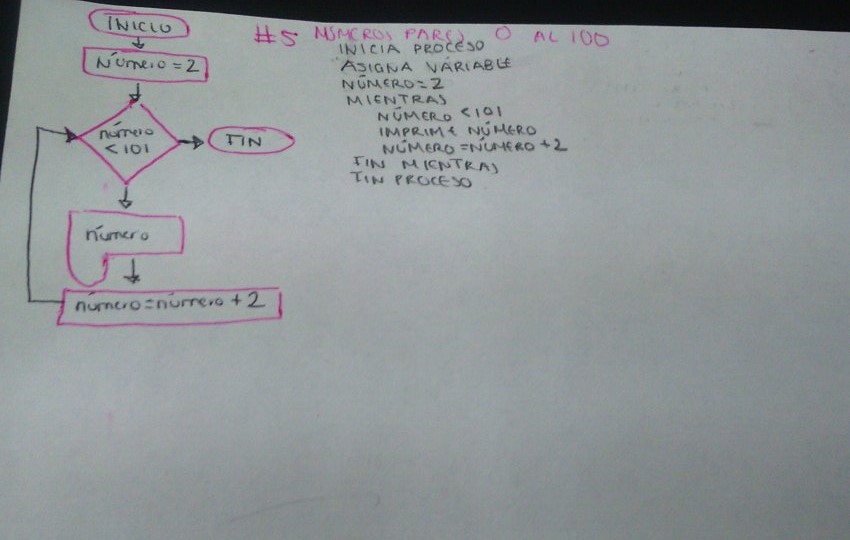 INICIO
Número = 2
número
< 101
FIN
número
número = número + 2
#5 NÚMEROS PARES 0 AL 100
INICIA PROCESO
ASIGNA VARIABLE
NÚMERO = 2
MIENTRAS
NÚMERO < 101
IMPRIME NÚMERO
NÚMERO = NÚMERO + 2
FIN MIENTRAS
FIN PROCESO